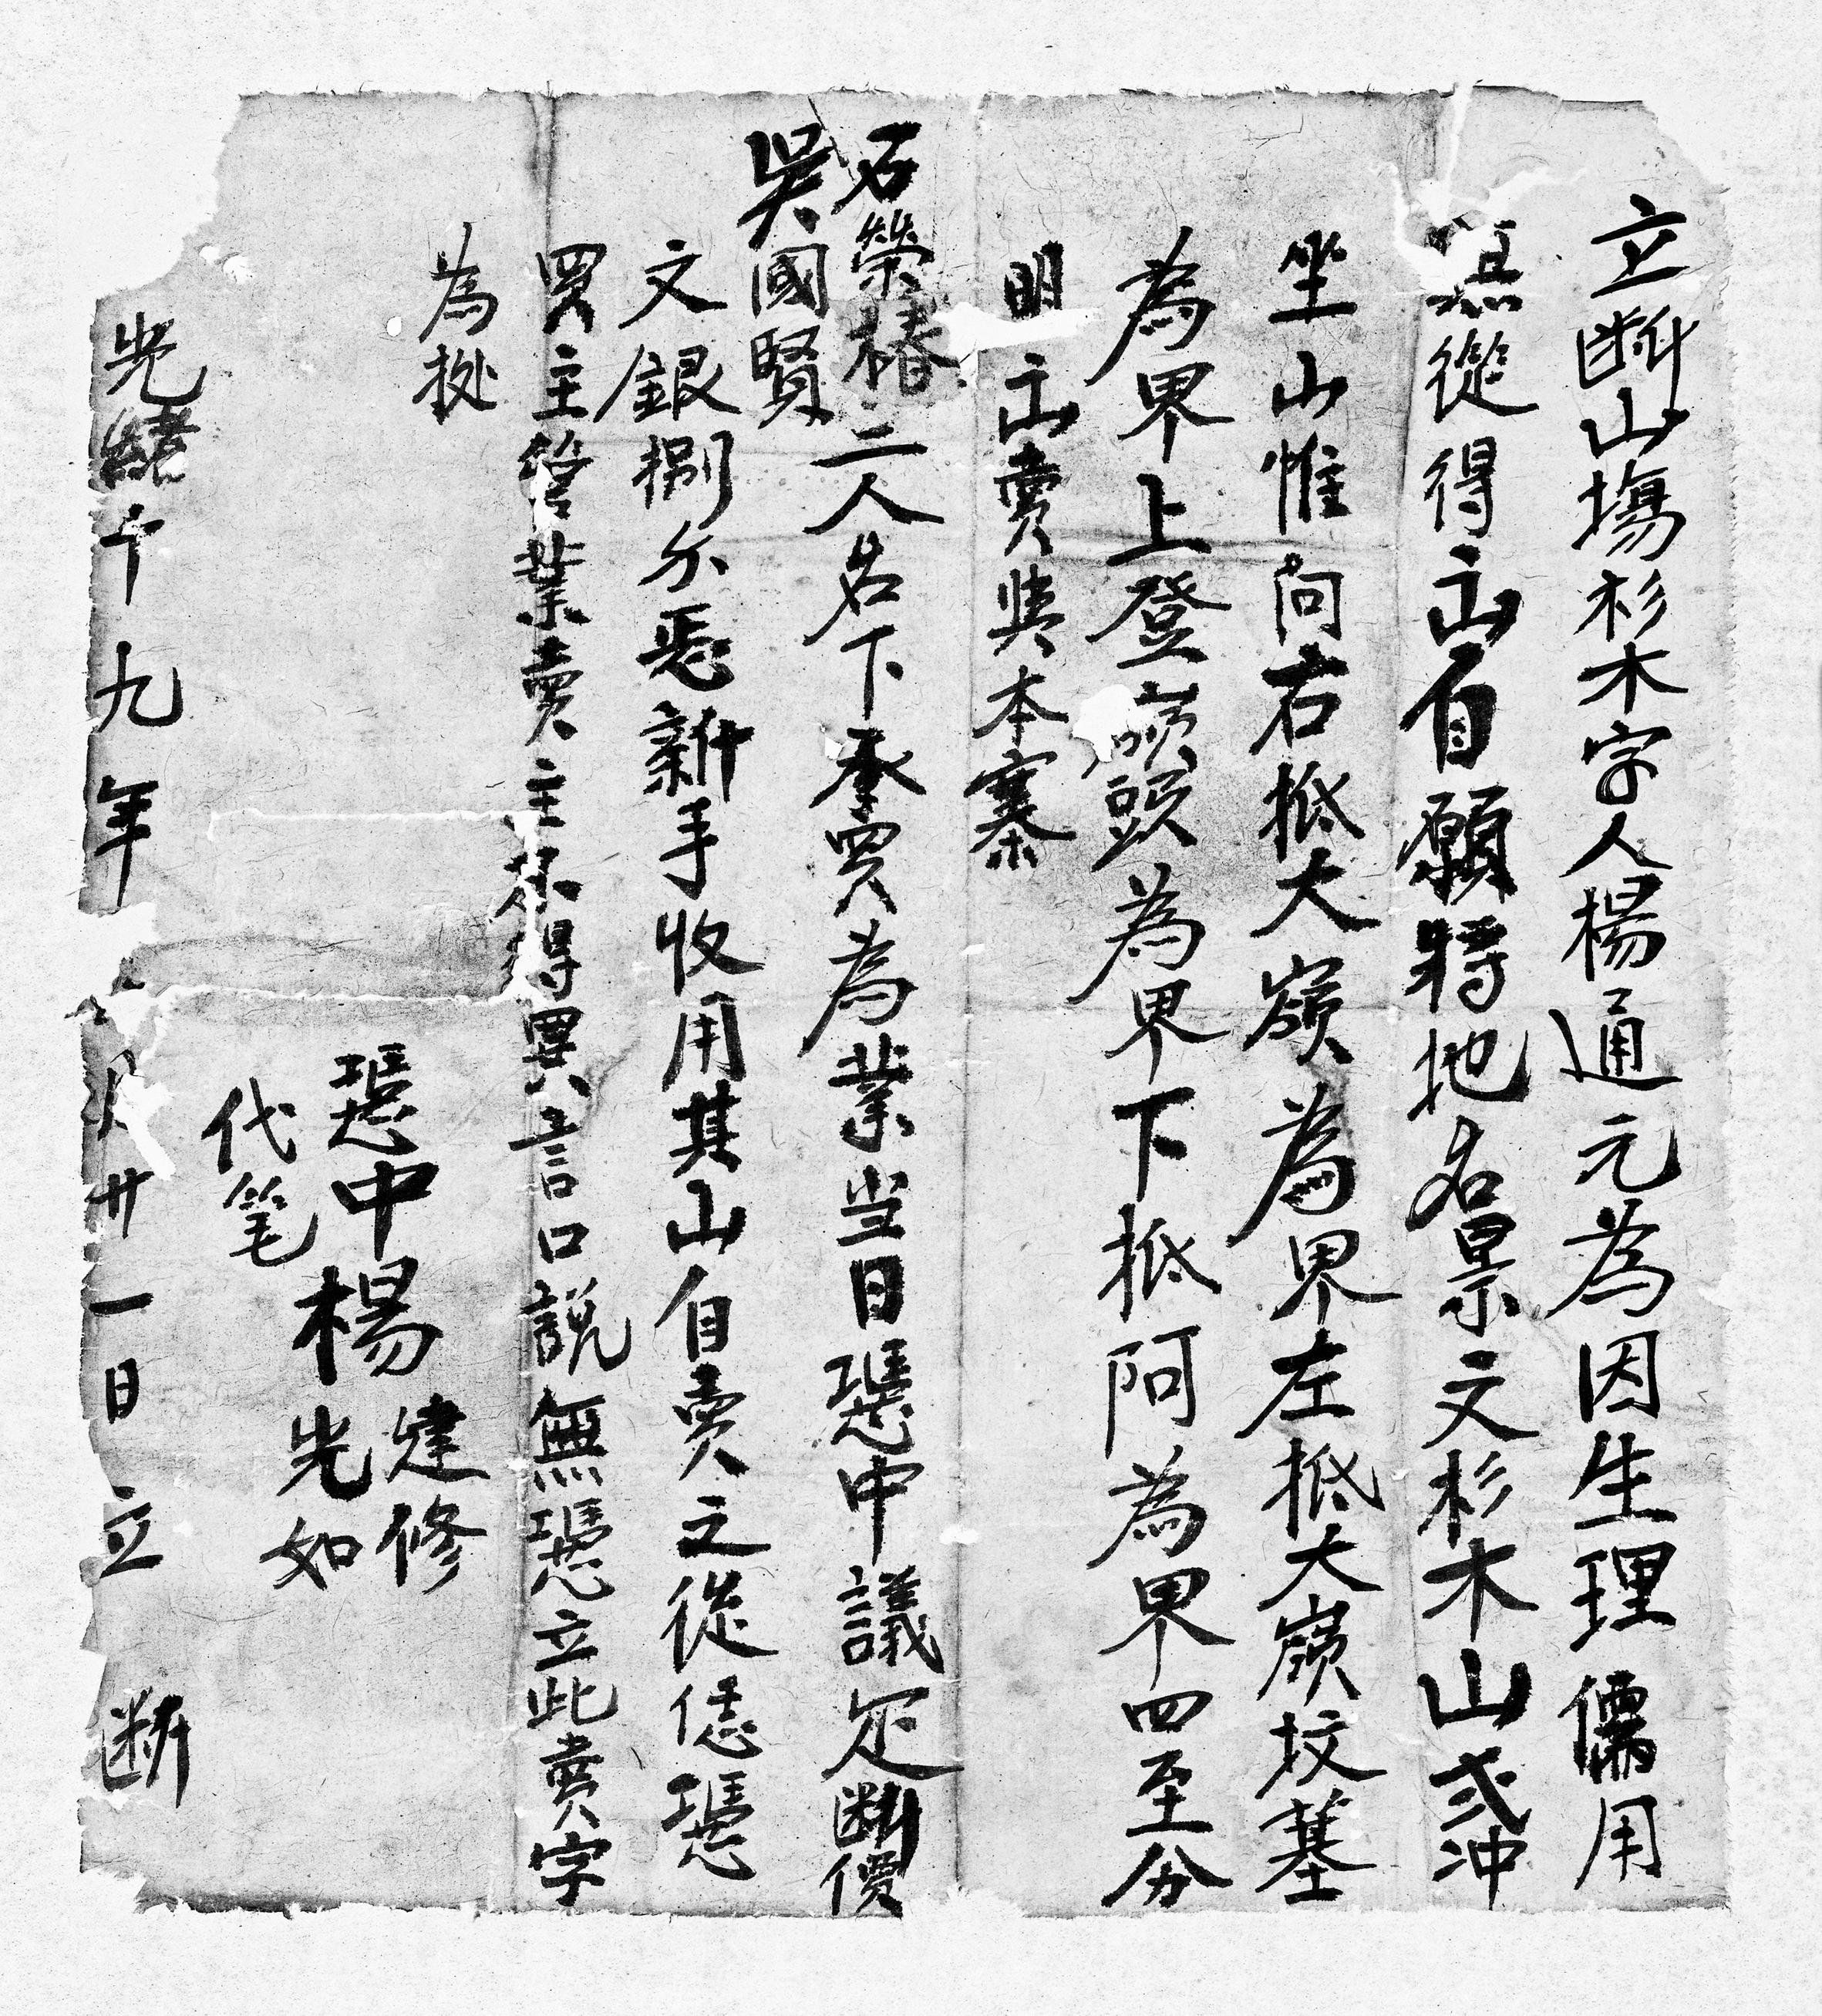 立断山塲杉木字人楊通元為因生理儒用
無從得出自願將地名景文杉木山弍冲
坐山惟向右抵大嶺為界左抵大嶺坟墓
為界上登嶺頭為界下抵阿為界四至分
明出賣與本寨
石榮椿
吳國賢
二人名下承買為業当日憑中議定断價
文銀捌分悉親手收用其山自賣之從憑
買主管業賣主不得異言口說無憑立此賣字
為據
憑中楊建修
代笔光如
光緒十九年 月廿一日立 断